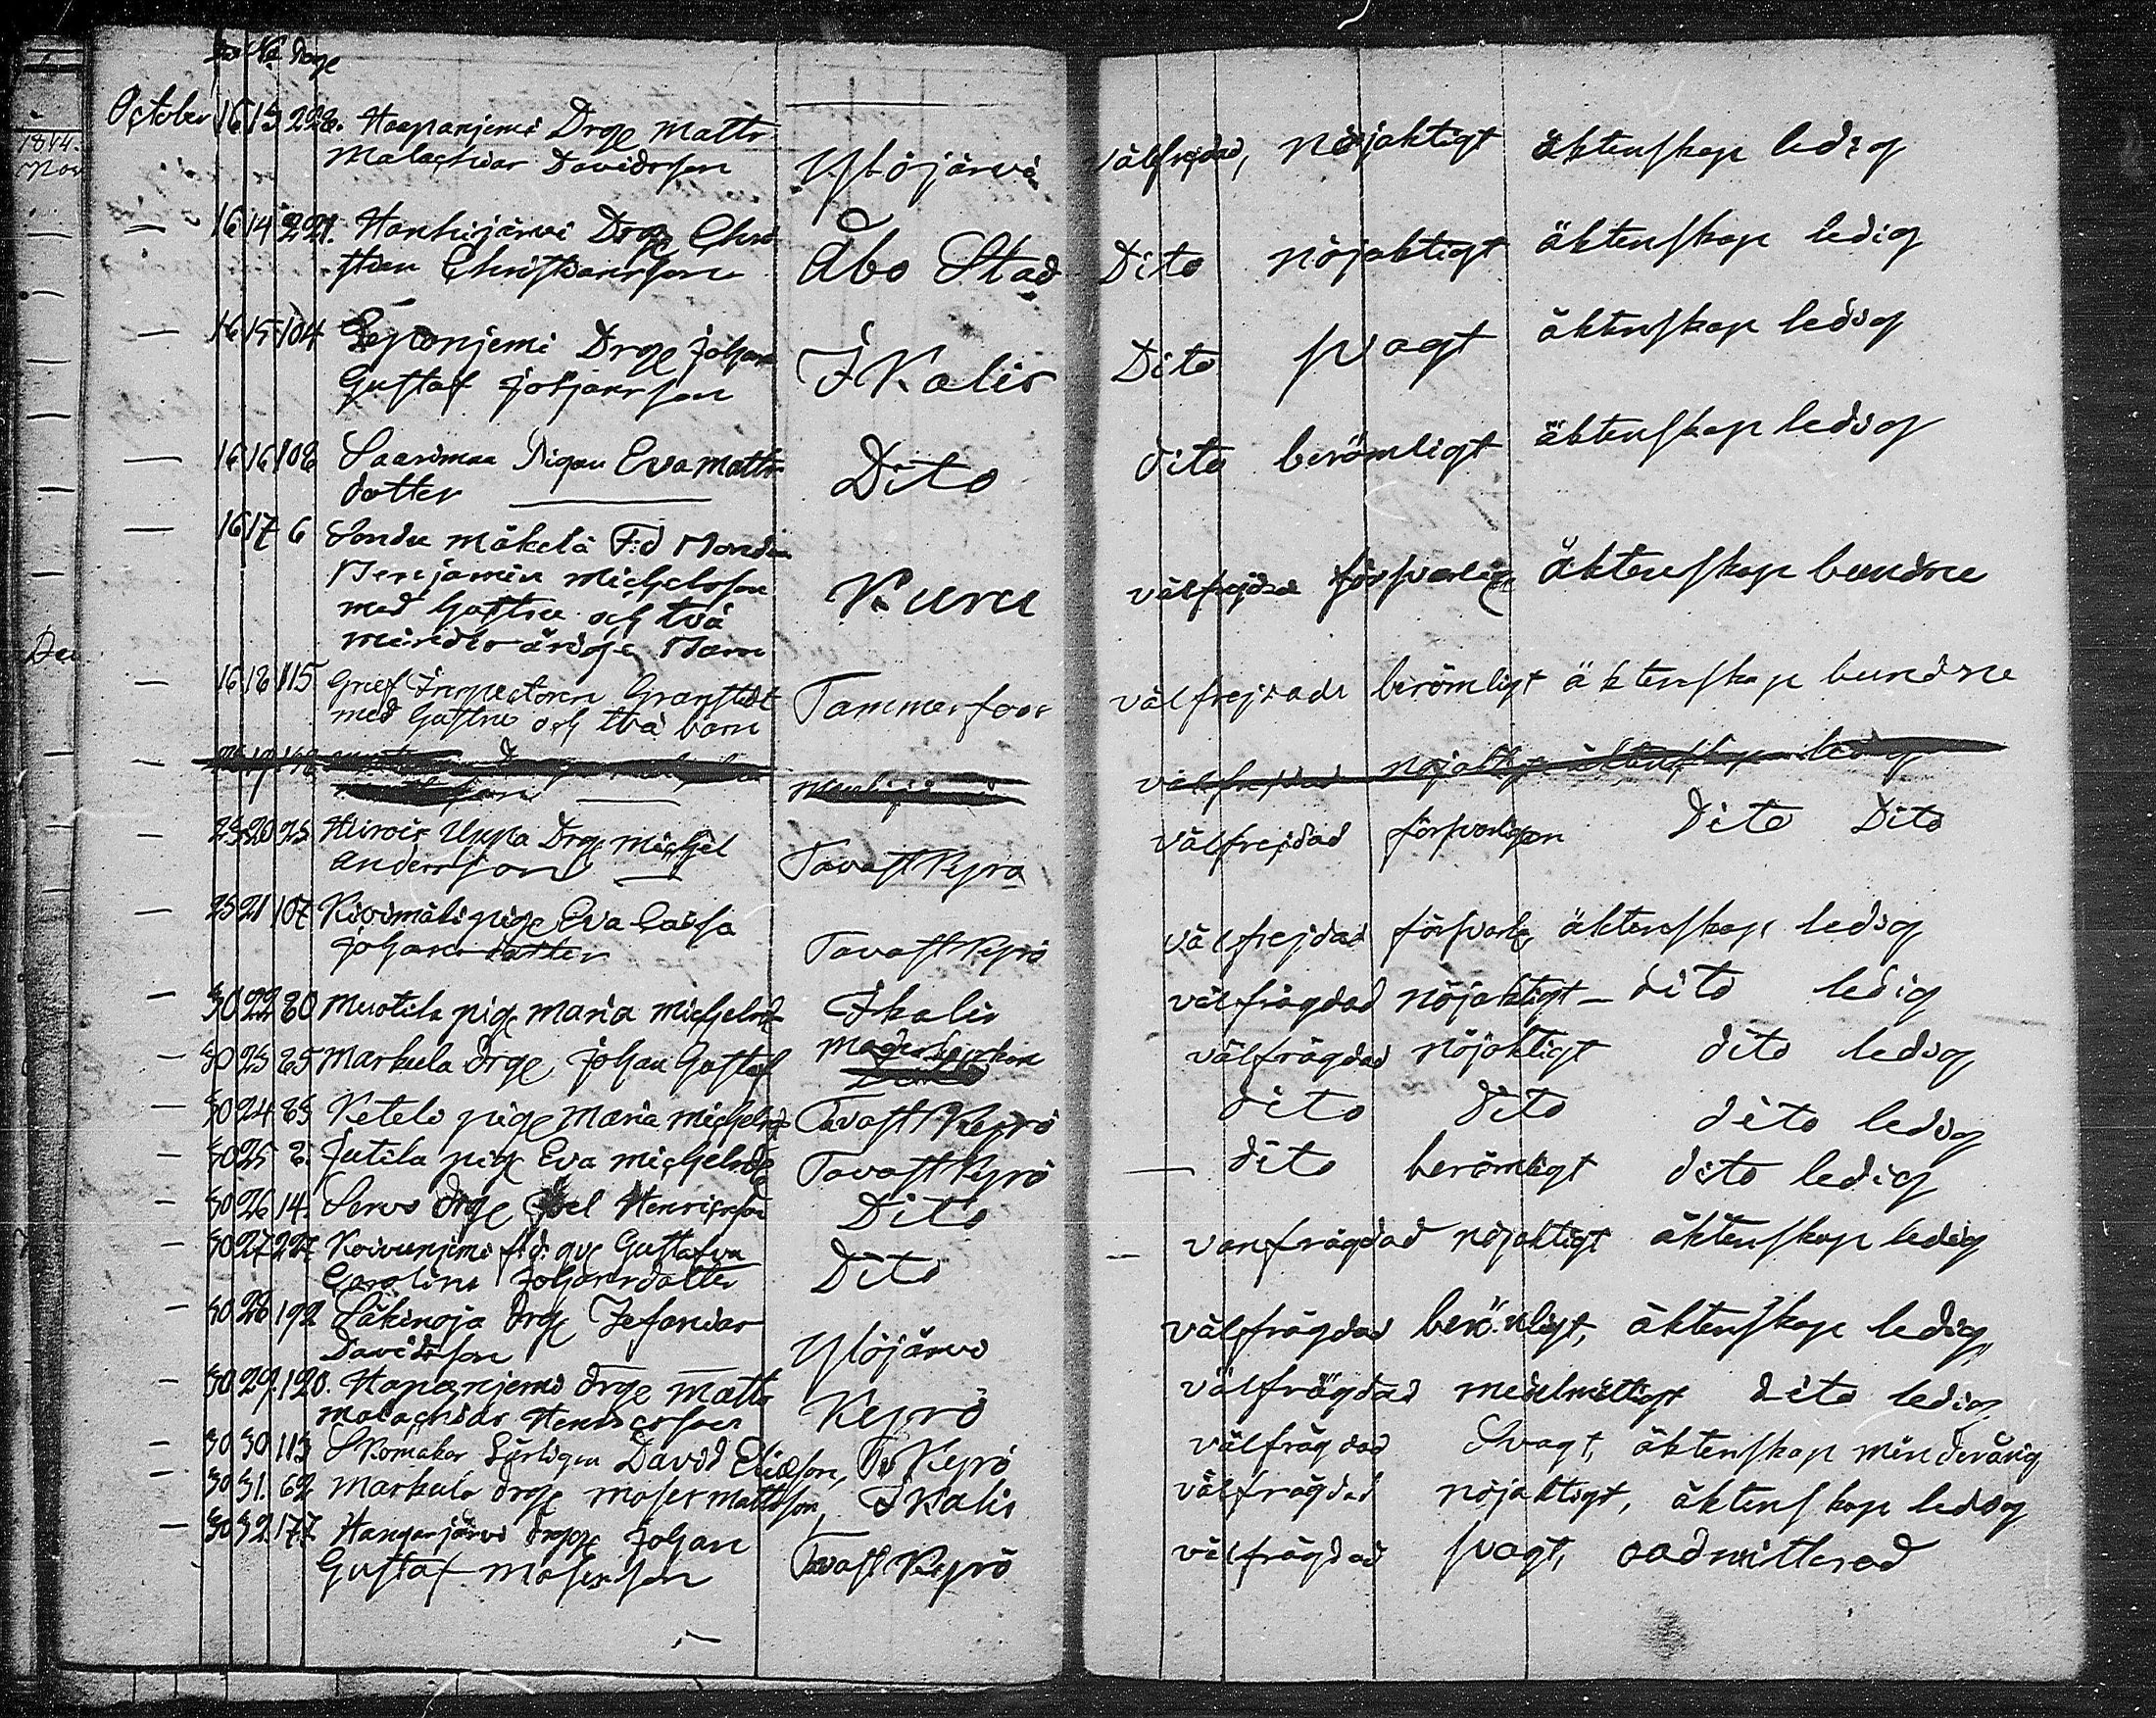 No Drge
October 16 13 228. Haapanjemi Drge Matts
Malachias Davidsson Ylöjärvi välfrejdad, nöjaktigt äktenskap ledig
— 16 14 221. Hanhijärvi Drge Chri
stian Christiansson Åbo Stad Dito nöjaktigt äktenskap ledig
— 16 15 104 Drge Johan
Gustaf Johansson IKalis Dito svagt äktenskap ledig
— 16 16 108 Saarimaa Pigan Eva Matts
dotter Dito dito berömligt äktenskap ledig
— 16 17 6 Mäkelä F:d Bonden
Benjamin Michelsson
med hustru och två
minderåriga Barn Kuru välfrejdade försvarlig äktenskap bundne
— 16 18 115 Inspectoren Granstedt
med hustru och två barn Tammerfors välfrejdade berömligt äktenskap bundne
— välfrejdad nöjaktigt äktenskap ledig
— 25 20 25 Uppa Drge Michel
Andersson Tavast Kyro välfrejdad försvarligen Dito Dito
— 25 21 107 Kivimäki pige Eva Caisa
Johansdotter TavastKyrö välfrejdad försvarlig äktenskap ledig
— 30 22 80 Muotila pige Maria Michelsd Ikalis välfrägdad nöjaktigt — dito ledig
— 30 23 85 Markula drge Johan Gustaf välfrägdad nöjaktigt dito ledig
— 30 24 85 Ketele pige Maria Michelsd Tavast Kyrö dito dito dito ledig
— 30 25 8. Jutila pige Eva Michelsd TavastKyrö — dito berömligt dito ledig
— 30 26 14. Servo drge Joel Henricsson Dito
— 30 27 227 Koivunjemi Gustafva
Carolina Johansdotter Dito — vanfrägdad nöjaktigt äktenskap ledig
— 30 28 192 Säkinoja drge Zefanias
Davidsson Ylöjärvi välfrägdad berömligt, äktenskap ledig
— 30 29. 120. Hapanjemi drge Matts
Malachias Henricsson Kyrö välfrägdad medelmåttigt dito ledig
— 30 30 113 Skomakar Lärlingen David Eliæson, T Kyrö välfrägdad Svagt, äktenskap minderårig
— 30 31. 62 Markula drge Moses Mattsson, IKalis välfrägdad nöjaktigt, äktenskap ledig
— 30 32 177 Hangasjärvi drge Johan
Gustaf Mosesson Tavast Kyrö välfrägdad svagt, oadmitterad
1844.
Nov
De